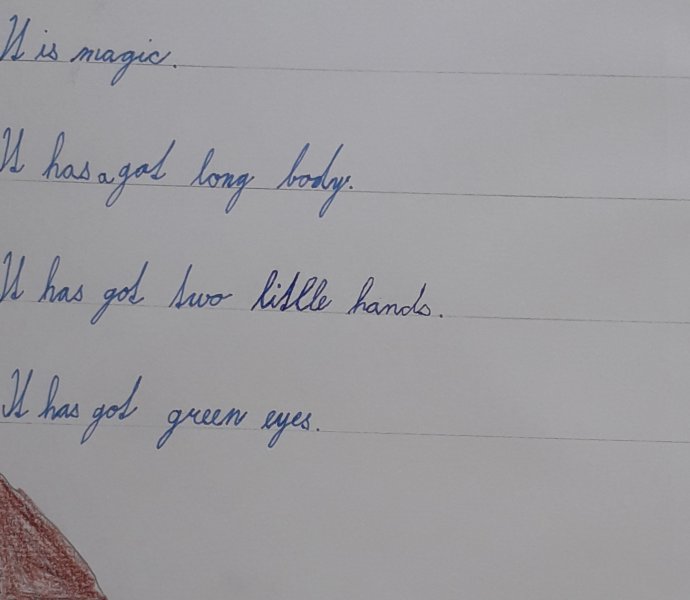 It is magic.
It has a got long body.
It has got two little hands.
It has got green eyes.